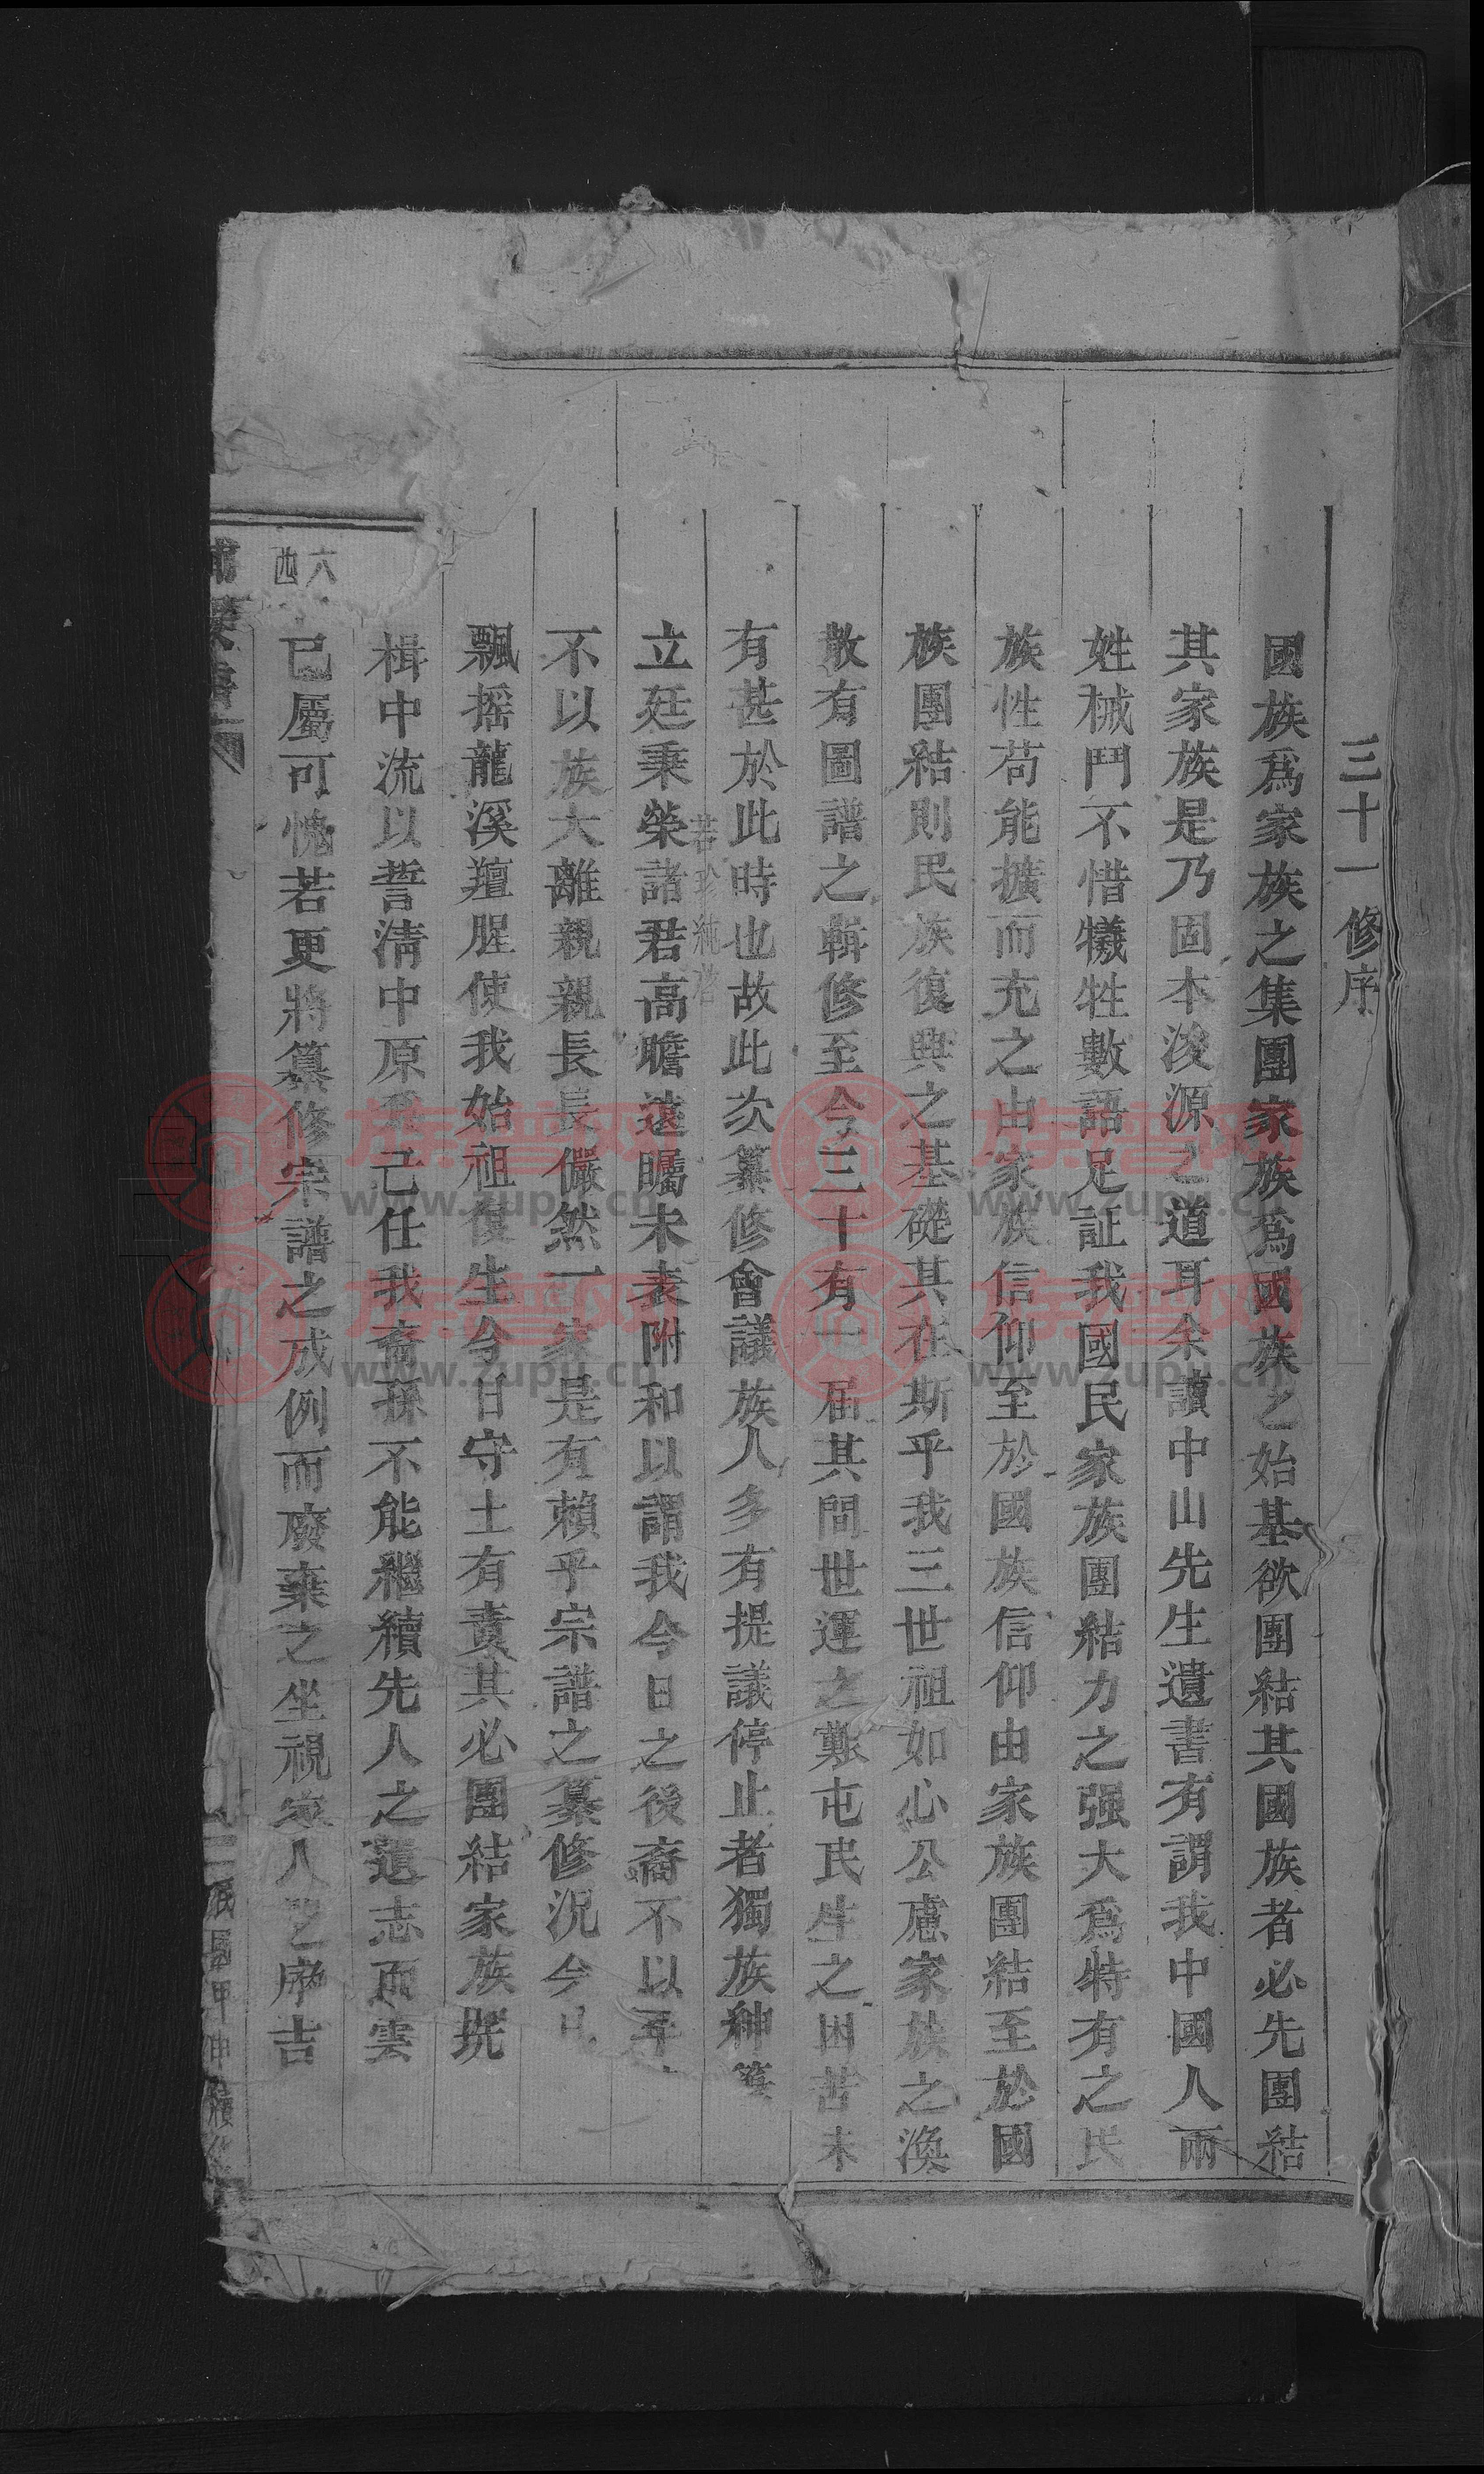 三十一修序
國族爲家族之集團家族爲國族之始基欲團結其國族者必先團結
其家族是乃固本浚源之道耳余讀中山先生遺書有謂我中國人兩
姓械鬥不惜犧牲數語足証我國民家族團結力之强大爲特有之民
族性苟能擴而充之由家族信仰至於國族信仰由家族團結至於國
族團結則民族復興之基礎其在斯乎我三世祖如心公慮家族之渙
散有圖譜之輯修至今三十有一届其間世運之艱屯民生之困苦未
有甚於此時也故此次纂修會議族人多有提議停止者獨族紳
若珍純
立廷秉榮諸君高瞻遠矚未表附和以謂我今日之後裔不以
不以族大離親親長長儼然一家是有賴乎宗譜之纂修況今
飄摇龍溪羶腥使我始祖復生今日守土有責其必團結家族
楫中流以誓淸中原爲己任我裔孫不能繼續先人之遺志而雲
已屬可愧若更將纂修宗譜之成例而廢棄之坐視家人
六
西
族譜网
www.zupu.cn
族譜网
www.zupu.cn
族譜网
www.zupu.cn
族譜网
www.zupu.cn